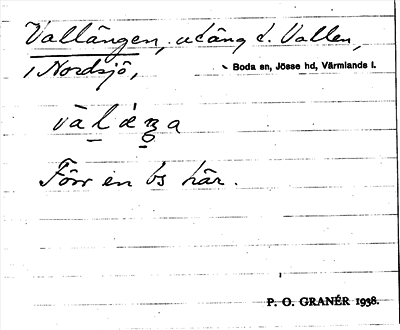 Vallängen, utäng t. Vallen,
i Nordsjö,
Boda sn, Jösse hd, Värmlands l.
Förr en bs här.
P. O. GRANÉR 1938.